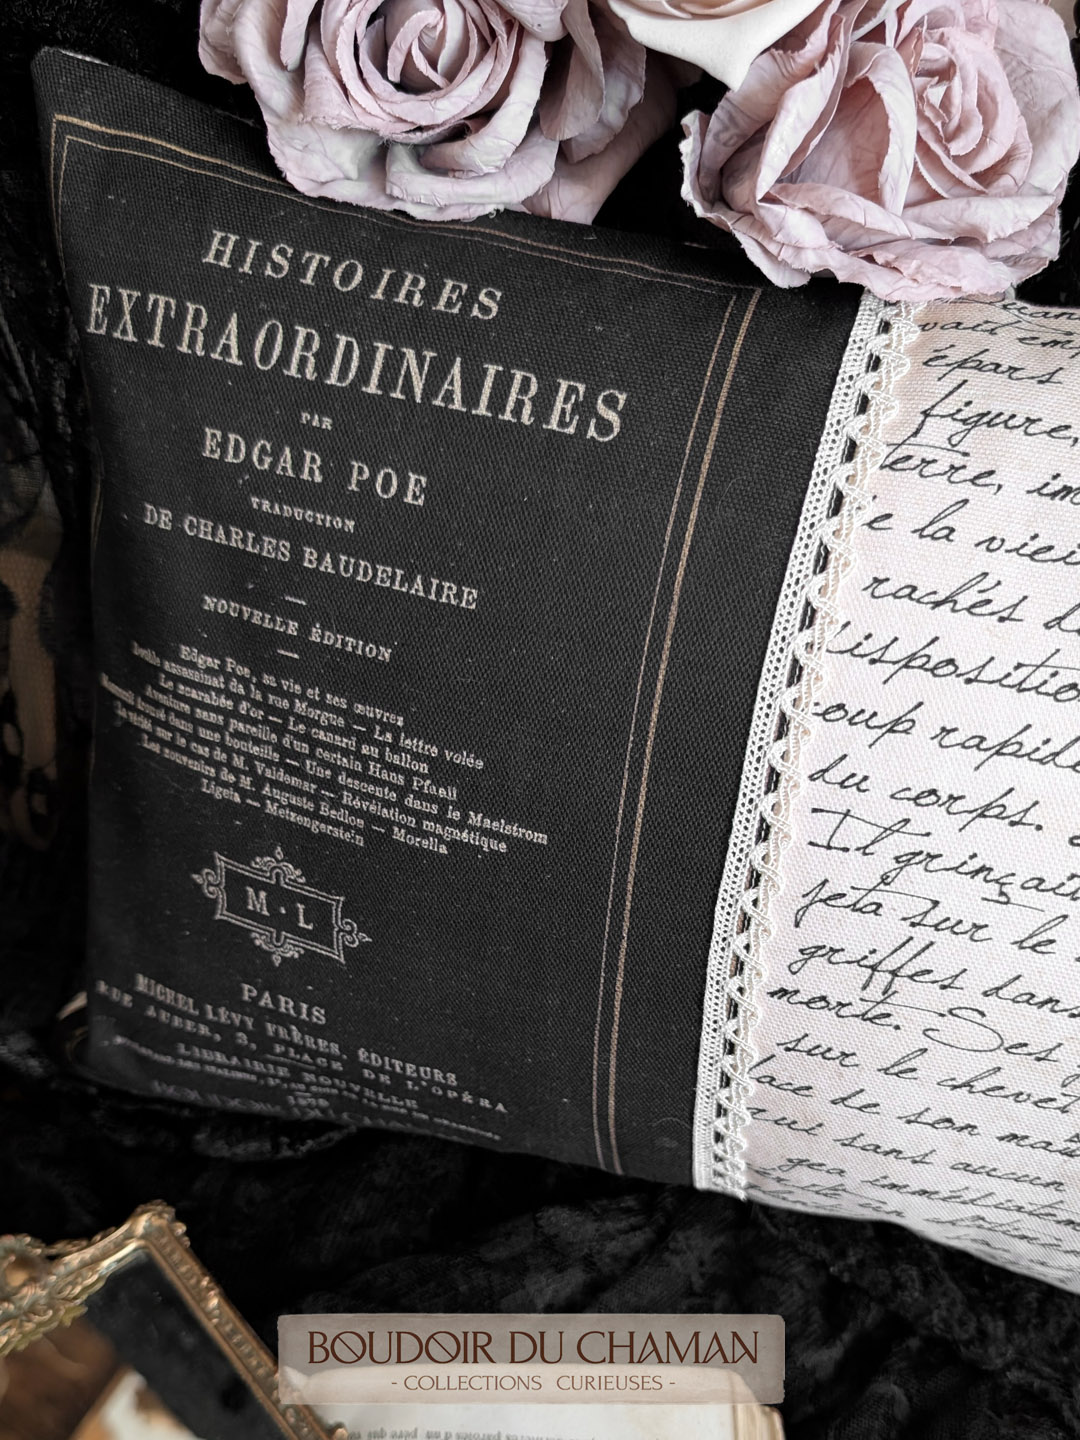 HISTOIRES
EXTRAORDINAIRES
PAR
EDGAR POE
TRADUCTION
DE CHARLES BAUDELAIRE
NOUVELLE ÉDITION
Edgar Poe, sa vie et ses œuvres
Double assassinat da la rue Morgue — La lettre volée
Le scarabée d'or — Le canard au ballon
Aventure sans pareille d'un certain Hans Pfaall
Manuscrit trouvé dans une bouteille — Une descente dans le Maelstrom
La vérité sur le cas de M. Valdemar — Révélation magnétique
Les souvenirs de M. Auguste Bedloe — Morella
Ligeia — Metzengerstein
M · L
PARIS
MICHEL LÉVY FRÈRES, ÉDITEURS
RUE AUBER, 3, PLACE DE L'OPÉRA
LIBRAIRIE NOUVELLE
vait
épars
figure,
terre, im
e la viei
rachés d
disposition
coup rapide
du corps.
Il grinçait
jeta sur le
griffes dans
morte. Ses
sur le chevet
lace de son maît
qui sans aucun
gea immédiatem
BOUDOIR DU CHAMAN
- COLLECTIONS CURIEUSES -